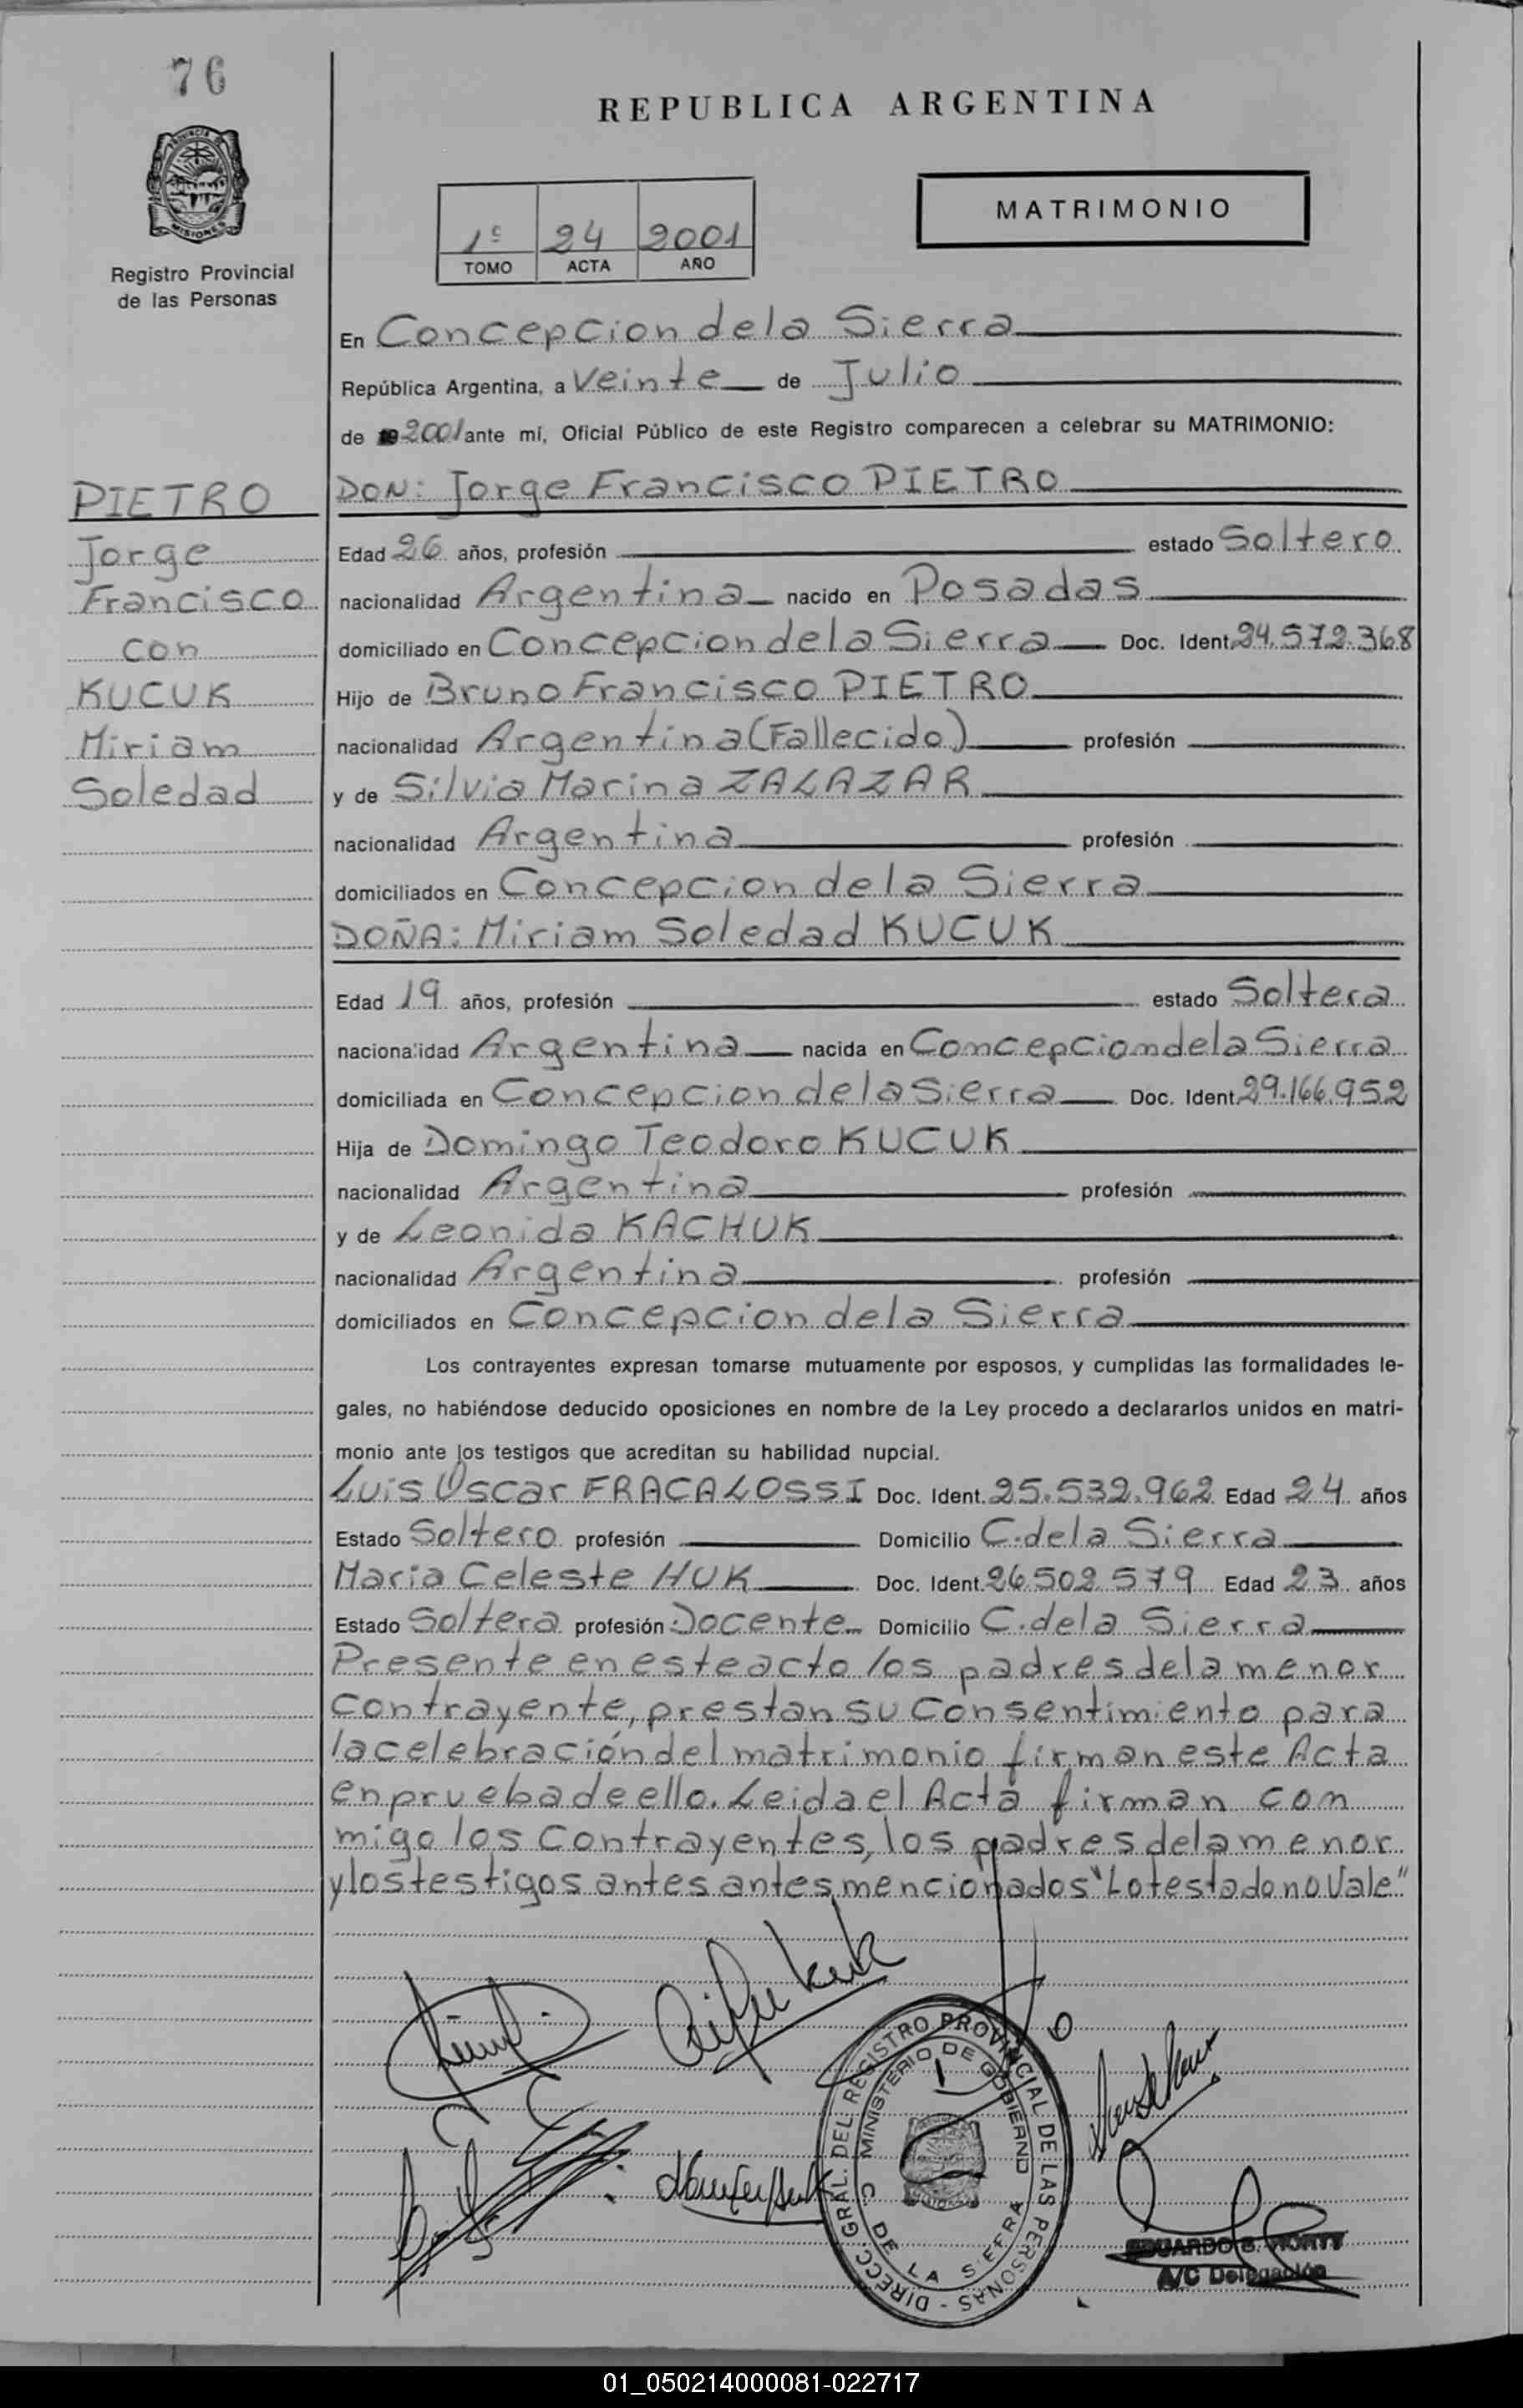 76
REPUBLICA ARGENTINA
PROVINCIA
MISIONES
Registro Provincial
de las Personas
1º 24 2001
TOMO ACTA AÑO
MATRIMONIO
En Concepcion de la Sierra
República Argentina, a Veinte de Julio
de 2001 ante mí, Oficial Público de este Registro comparecen a celebrar su MATRIMONIO:
PIETRO
Jorge
Francisco
con
KUCUK
Miriam
Soledad
DON: Jorge Francisco PIETRO
Edad 26 años, profesión estado Soltero
nacionalidad Argentina nacido en Posadas
domiciliado en Concepcion de la Sierra Doc. Ident. 24.572.368
Hijo de Bruno Francisco PIETRO
nacionalidad Argentina (Fallecido) profesión
y de Silvia Marina ZALAZAR
nacionalidad Argentina profesión
domiciliados en Concepcion de la Sierra
DOÑA: Miriam Soledad KUCUK
Edad 19 años, profesión estado Soltera
nacionalidad Argentina nacida en Concepcion de la Sierra
domiciliada en Concepcion de la Sierra Doc. Ident. 29.166.952
Hija de Domingo Teodoro KUCUK
nacionalidad Argentina profesión
y de Leonida KACHUK
nacionalidad Argentina profesión
domiciliados en Concepcion de la Sierra
Los contrayentes expresan tomarse mutuamente por esposos, y cumplidas las formalidades le-
gales, no habiéndose deducido oposiciones en nombre de la Ley procedo a declararlos unidos en matri-
monio ante los testigos que acreditan su habilidad nupcial.
Luis Oscar FRACALOSSI Doc. Ident. 25.532.962 Edad 24 años
Estado Soltero profesión Domicilio C. de la Sierra
Maria Celeste HUK Doc. Ident. 26.502.579 Edad 23 años
Estado Soltera profesión Docente Domicilio C. de la Sierra
Presente en este acto los padres de la menor
contrayente, prestan su consentimiento para
la celebración del matrimonio firman este Acta
en prueba de ello. Leida el Acta firman con
migo los contrayentes, los padres de la menor
y los testigos antes antes mencionados "Lo testado no Vale"
DIRECC. GRAL. DEL REGISTRO PROVINCIAL DE LAS PERSONAS -
MINISTERIO DE GOBIERNO
C. DE LA SIERRA
EDUARDO
A/C Delegación
01_050214000081-022717